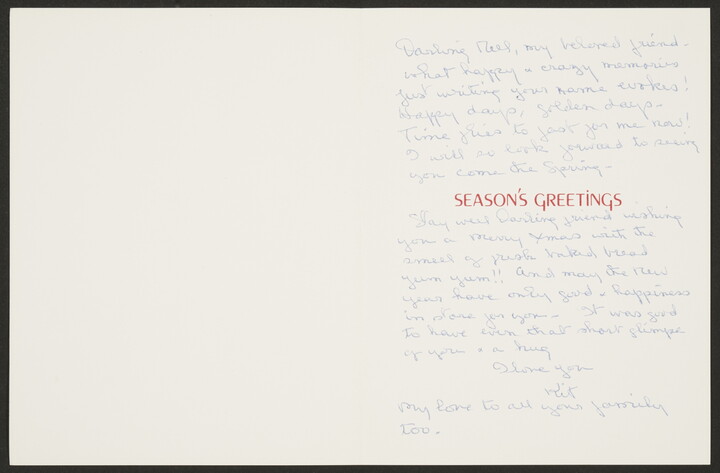 Darling Mel, my beloved friend -
what happy & crazy memories
just writing your name evokes!
Happy days, golden days -
Time flies to fast for me now!
I will so look forward to seeing
you come the Spring -
SEASON'S GREETINGS
Stay well Darling friend wishing
you a merry Xmas with the
smell of fresh baked bread
yum yum!! And may the New
year have only good & happiness
in store for you - It was good
to have even that short glimpse
of you & a hug
I love you
Kit
my love to all your family
too.